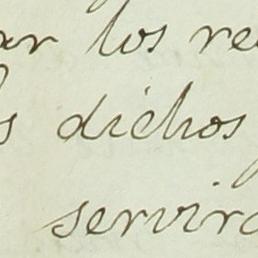 ar los re
s dichos
servira